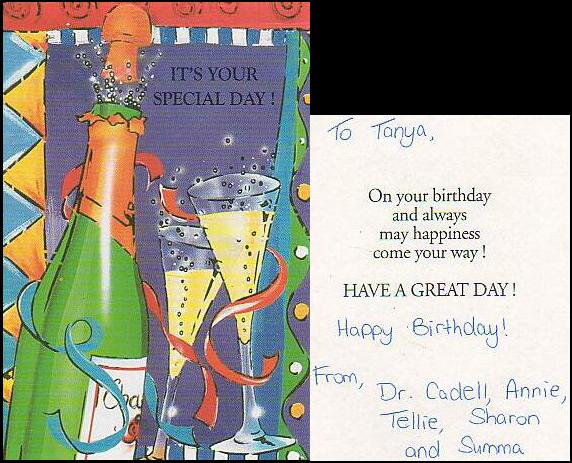 IT'S YOUR
SPECIAL DAY !
To Tanya,
On your birthday
and always
may happiness
come your way !
HAVE A GREAT DAY !
Happy Birthday!
From,
Dr. Cadell, Annie,
Tellie, Sharon
and Summa